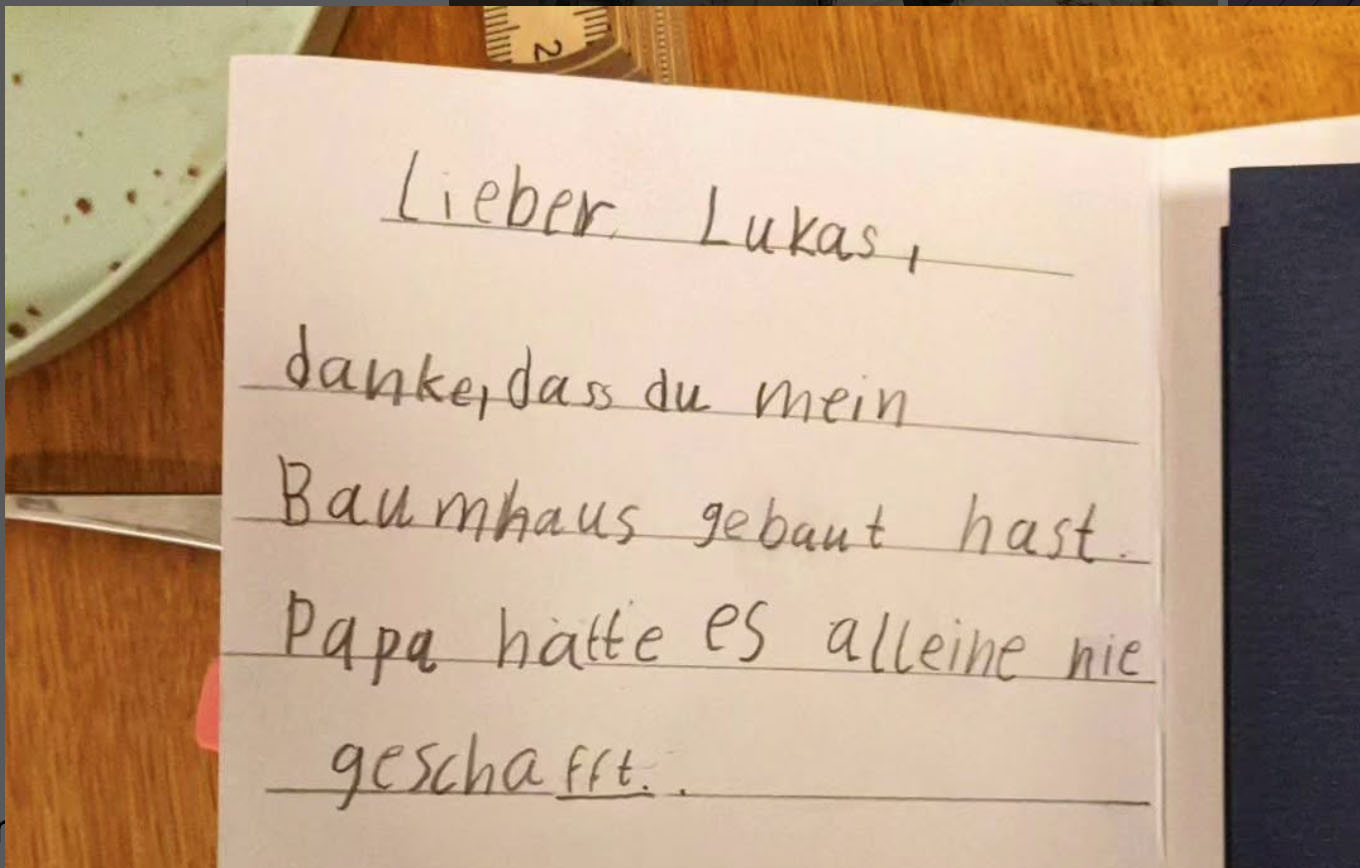 2
Lieber Lukas,
danke, dass du mein
Baumhaus gebaut hast.
Papa hätte es alleine nie
geschafft..